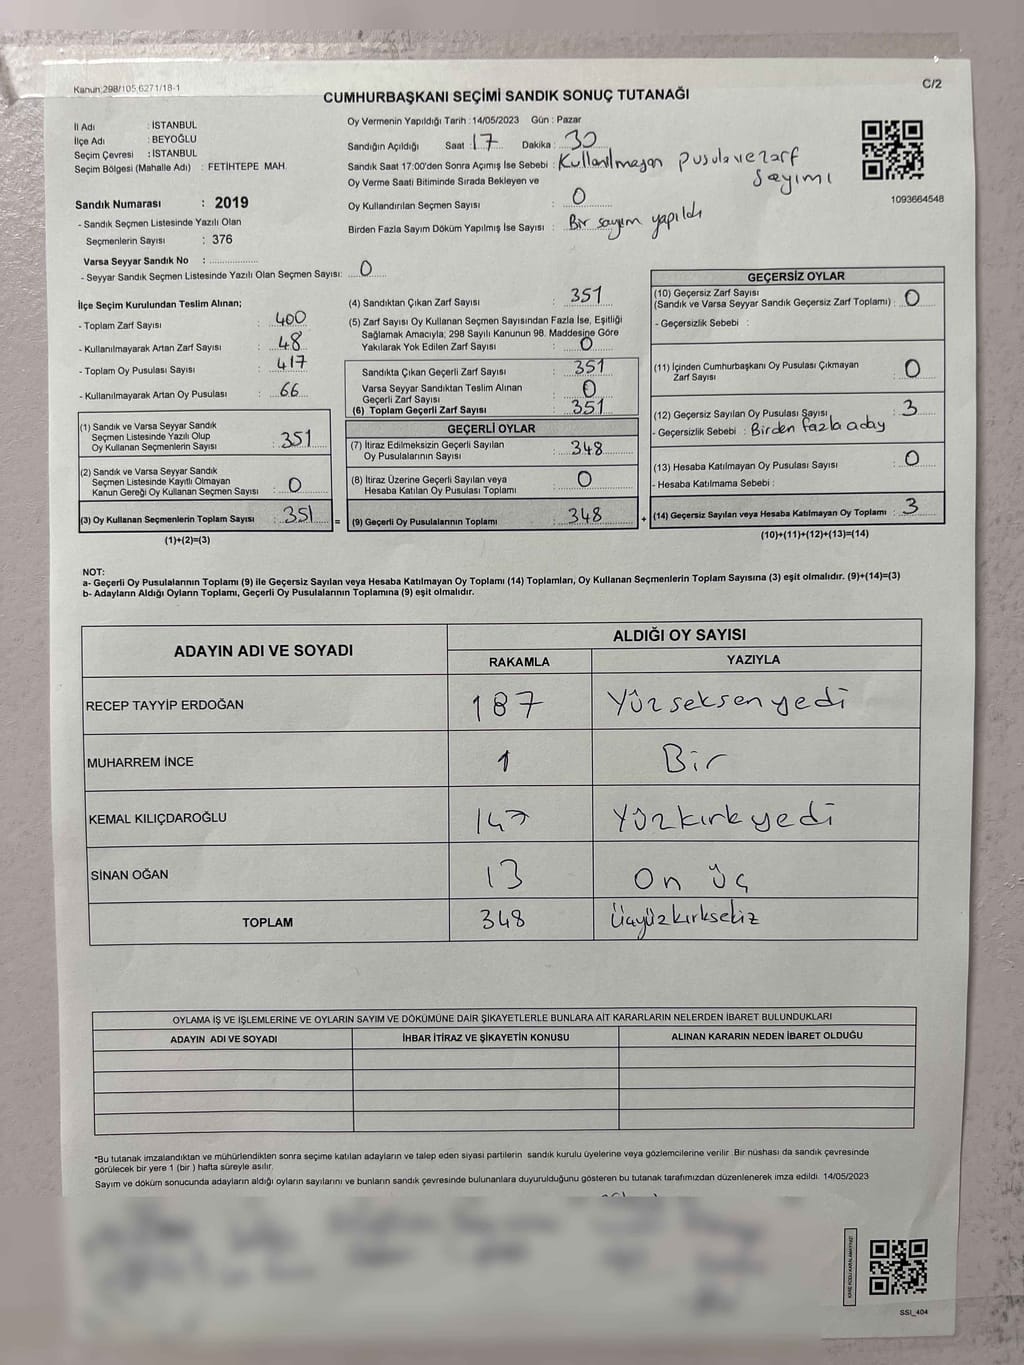 Kanun:298/105,6271/18-1
C/2
CUMHURBAŞKANI SEÇİMİ SANDIK SONUÇ TUTANAĞI
İl Adı : İSTANBUL
İlçe Adı : BEYOĞLU
Seçim Çevresi : İSTANBUL
Seçim Bölgesi (Mahalle Adı) : FETİHTEPE MAH.
Oy Vermenin Yapıldığı Tarih : 14/05/2023 Gün : Pazar
Sandığın Açıldığı Saat : 17 Dakika : 30
Sandık Saat 17:00'den Sonra Açımış İse Sebebi : Kullanılmayan pusula ve zarf
sayımı
Oy Verme Saati Bitiminde Sırada Bekleyen ve
Oy Kullandırılan Seçmen Sayısı : 0
Birden Fazla Sayım Döküm Yapılmış İse Sayısı : Bir sayım yapıldı
1093664548
Sandık Numarası : 2019
- Sandık Seçmen Listesinde Yazılı Olan
Seçmenlerin Sayısı : 376
Varsa Seyyar Sandık No :
- Seyyar Sandık Seçmen Listesinde Yazılı Olan Seçmen Sayısı: 0
İlçe Seçim Kurulundan Teslim Alınan;
- Toplam Zarf Sayısı : 400
- Kullanılmayarak Artan Zarf Sayısı : 48
- Toplam Oy Pusulası Sayısı : 417
- Kullanılmayarak Artan Oy Pusulası : 66
(1) Sandık ve Varsa Seyyar Sandık
Seçmen Listesinde Yazılı Olup
Oy Kullanan Seçmenlerin Sayısı : 351
(2) Sandık ve Varsa Seyyar Sandık
Seçmen Listesinde Kayıtlı Olmayan
Kanun Gereği Oy Kullanan Seçmen Sayısı : 0
(3) Oy Kullanan Seçmenlerin Toplam Sayısı : 351 =
(1)+(2)=(3)
(4) Sandıktan Çıkan Zarf Sayısı : 351
(5) Zarf Sayısı Oy Kullanan Seçmen Sayısından Fazla İse, Eşitliği
Sağlamak Amacıyla; 298 Sayılı Kanunun 98. Maddesine Göre
Yakılarak Yok Edilen Zarf Sayısı : 0
Sandıkta Çıkan Geçerli Zarf Sayısı : 351
Varsa Seyyar Sandıktan Teslim Alınan
Geçerli Zarf Sayısı : 0
(6) Toplam Geçerli Zarf Sayısı : 351
GEÇERLİ OYLAR
(7) İtiraz Edilmeksizin Geçerli Sayılan
Oy Pusulalarının Sayısı : 348
(8) İtiraz Üzerine Geçerli Sayılan veya
Hesaba Katılan Oy Pusulası Toplamı : 0
(9) Geçerli Oy Pusulalarının Toplamı : 348 +
GEÇERSİZ OYLAR
(10) Geçersiz Zarf Sayısı
(Sandık ve Varsa Seyyar Sandık Geçersiz Zarf Toplamı) : 0
- Geçersizlik Sebebi :
(11) İçinden Cumhurbaşkanı Oy Pusulası Çıkmayan
Zarf Sayısı : 0
(12) Geçersiz Sayılan Oy Pusulası Sayısı : 3
- Geçersizlik Sebebi : Birden fazla aday
(13) Hesaba Katılmayan Oy Pusulası Sayısı : 0
- Hesaba Katılmama Sebebi :
(14) Geçersiz Sayılan veya Hesaba Katılmayan Oy Toplamı : 3
(10)+(11)+(12)+(13)=(14)
NOT:
a- Geçerli Oy Pusulalarının Toplamı (9) ile Geçersiz Sayılan veya Hesaba Katılmayan Oy Toplamı (14) Toplamları, Oy Kullanan Seçmenlerin Toplam Sayısına (3) eşit olmalıdır. (9)+(14)=(3)
b- Adayların Aldığı Oyların Toplamı, Geçerli Oy Pusulalarının Toplamına (9) eşit olmalıdır.
ADAYIN ADI VE SOYADI
ALDIĞI OY SAYISI
RAKAMLA YAZIYLA
RECEP TAYYİP ERDOĞAN 187 Yüzseksenyedi
MUHARREM İNCE 1 Bir
KEMAL KILIÇDAROĞLU 147 Yüzkırkyedi
SİNAN OĞAN 13 On üç
TOPLAM 348 Üçyüzkırksekiz
OYLAMA İŞ VE İŞLEMLERİNE VE OYLARIN SAYIM VE DÖKÜMÜNE DAİR ŞİKAYETLERLE BUNLARA AİT KARARLARIN NELERDEN İBARET BULUNDUKLARI
ADAYIN ADI VE SOYADI İHBAR İTİRAZ VE ŞİKAYETİN KONUSU ALINAN KARARIN NEDEN İBARET OLDUĞU
*Bu tutanak imzalandıktan ve mühürlendikten sonra seçime katılan adayların ve talep eden siyasi partilerin sandık kurulu üyelerine veya gözlemcilerine verilir. Bir nüshası da sandık çevresinde
görülecek bir yere 1 (bir) hafta süreyle asılır.
Sayım ve döküm sonucunda adayların aldığı oyların sayılarını ve bunların sandık çevresinde bulunanlara duyurulduğunu gösteren bu tutanak tarafımızdan düzenlenerek imza edildi. 14/05/2023
SSI_404